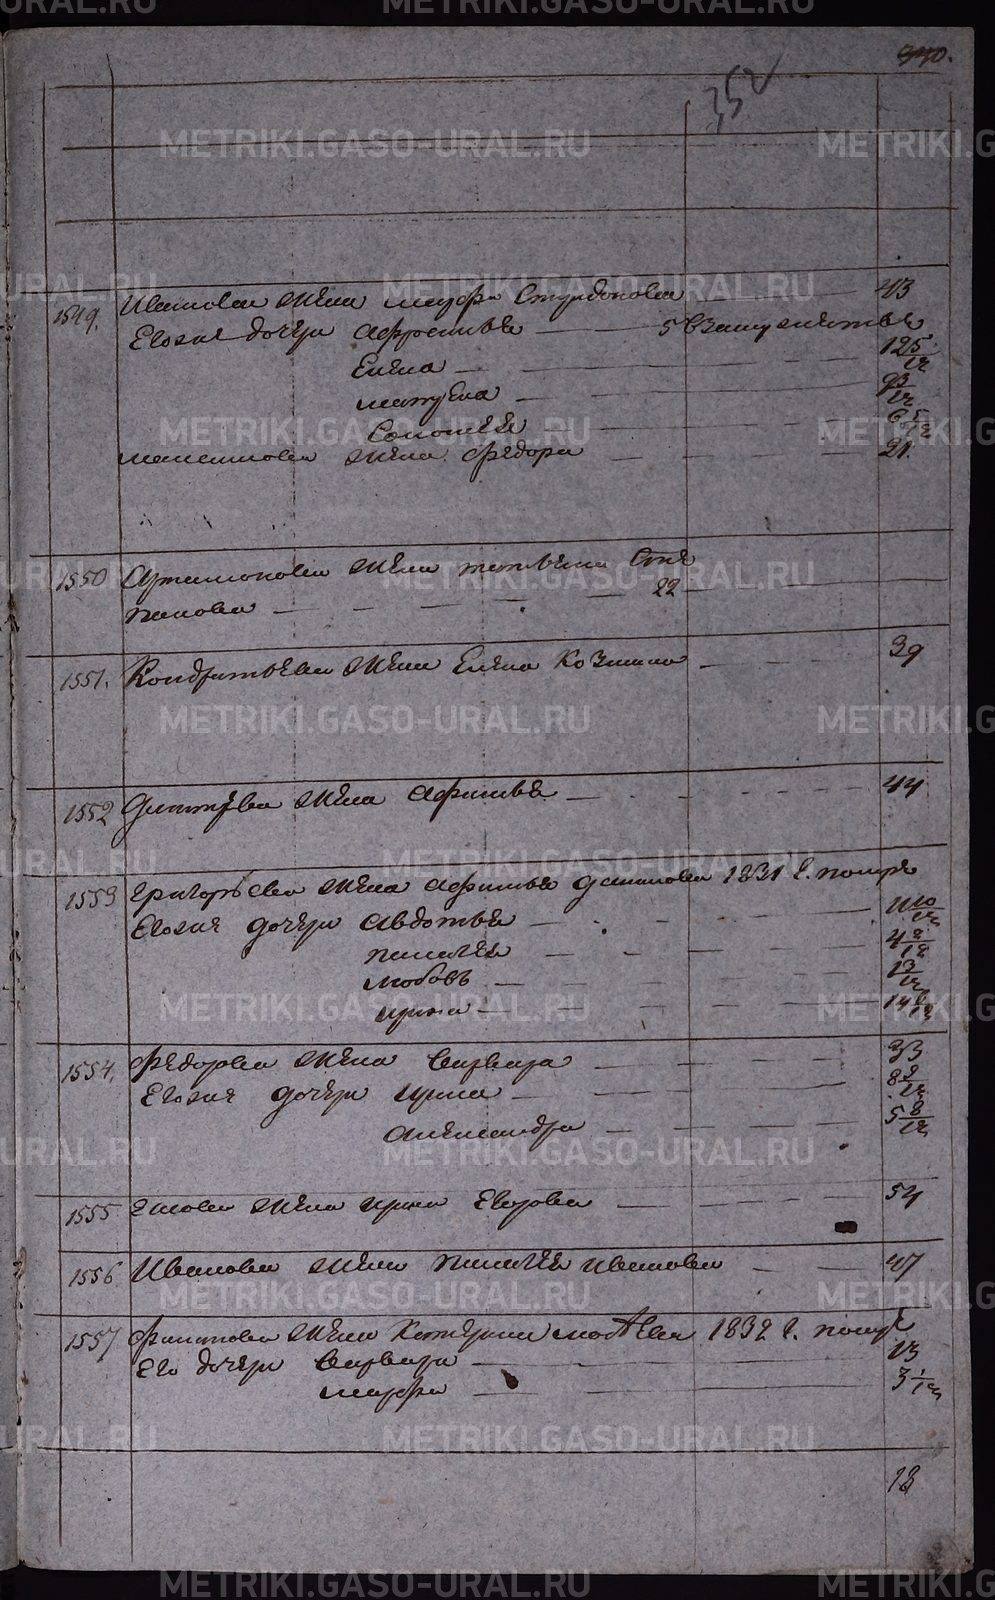 340.
352
1549. Иванова жена марфа Спиридонова 43
Егожие дочери афросинья — 5 Взамужистве
Елена — 12 5/12
матрена — 9 3/12
Соломея — 6 5/12
жена федора — 21.
1550 Артамонова жена татьяна
панова — 22
1551. Кондратьева жена Елена Козмина — 39
1552 жена афимья — 44
1553 григорьева жена афимья данилова 1831 г. помре
Егожие дочери авдотья — 11 10/12
пелагея — 4 2/12
любовь — 13/12
ирина —
1554. федорова жена варвара — 33
Егожие дочери ирина — 8 2/12
александра — 5 8/12
1555 жена ирина Егорова — 54
1556 Иванова жена пелагея иванова — 47
1557 филипова жена Катерина 1832 г. помре
Его дочери варвара — 13
марфа — 3 1/12
18
METRIKI.GASO-URAL.RU